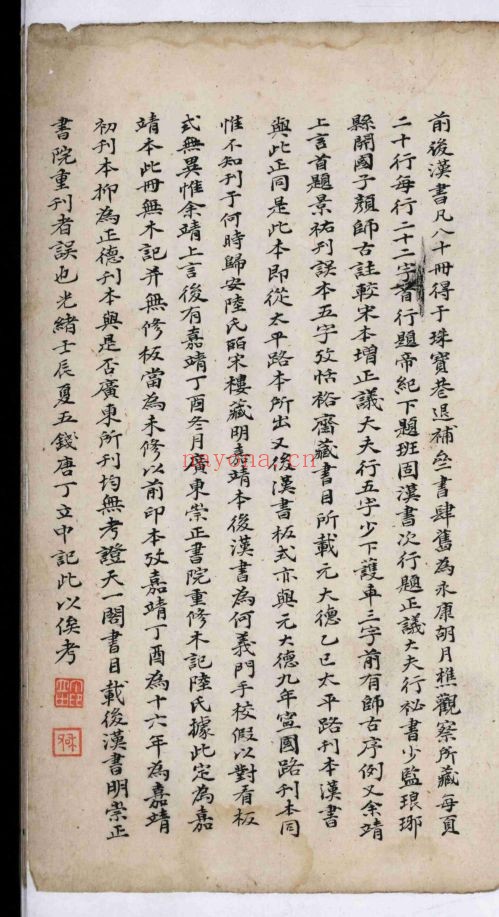 前後漢書凡八十冊得于珠寶巷退補叄書肆舊為永康胡月樵觀察所藏每頁
二十行每行二十二字首行題帝紀下題班固漢書次行題正議大夫行秘書少監琅琊
縣開國子顏師古註較宋本增正議大夫行五字少下護軍三字前有師古序例又余靖
上言首題景祐刊誤本五字攷恬裕齋藏書目所載元大德乙巳太平路刊本漢書
與此正同是此本即從太平路本所出又後漢書板式亦與元大德九年寧國路刊本同
惟不知刊于何時歸安陸氏皕宋樓藏明嘉靖本後漢書為何義門手校假以對看板
式無異惟余靖上言後有嘉靖丁酉冬月廣東崇正書院重修木記陸氏據此定為嘉
靖本此冊無木記并無修板當為未修以前印本攷嘉靖丁酉為十六年為嘉靖
初刊本抑為正德刊本與是否廣東所刊均無考證天一閣書目載後漢書明崇正
書院重刊者誤也光緒壬辰夏五錢唐丁立中記此以俟考
nayona.cn